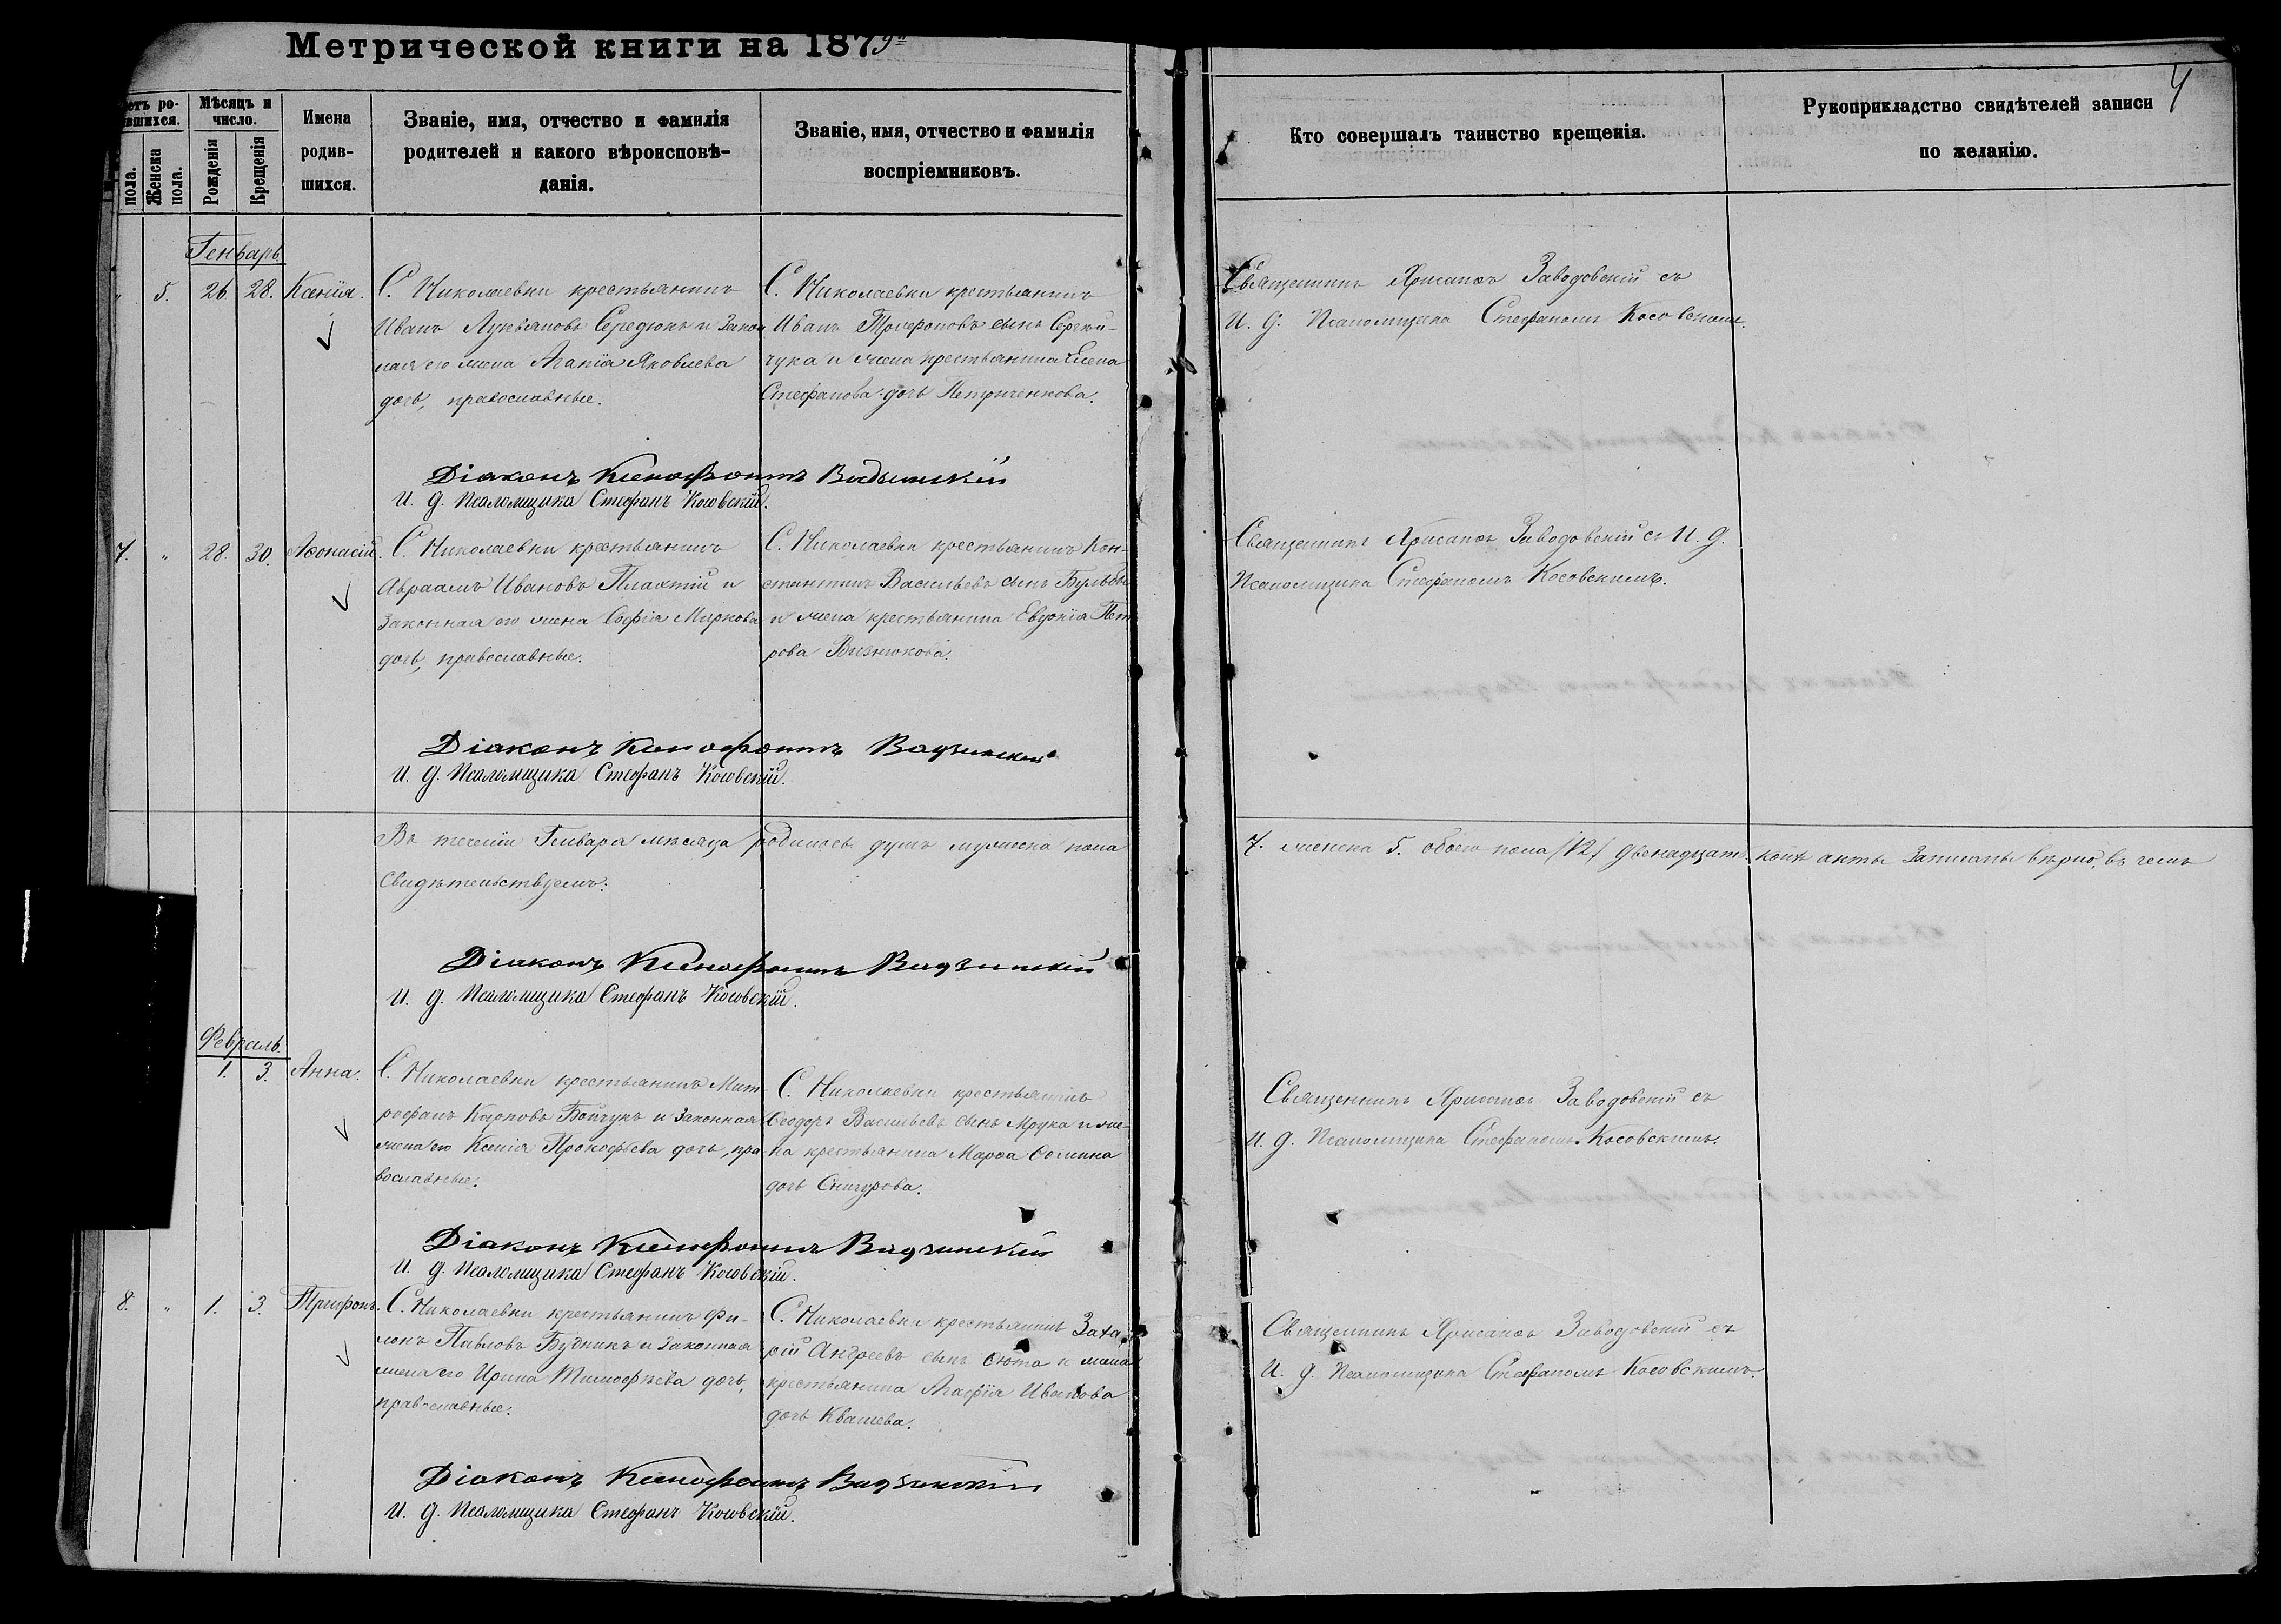 Метрической книги на 1879й
4
Мѣсяцъ и число.
Женска пола.
Рожденія
Крещенія
Имена родив-шихся.
Званіе, имя, отчество и фамилія
родителей и какого вѣроисповѣ-
данія.
Званіе, имя, отчество и фамилія
воспріемниковъ.
Кто совершалъ таинство крещенія.
Рукоприкладство свидѣтелей записи
по желанію.
Генварь
5. 26. 28. Ксенія.
С. Николаевки крестьянинъ
Иванъ Лукьяновъ Середюкъ и закон
ная его жена Агапія Яковлева
дочь, православные.
С. Николаевки крестьянинъ
Иванъ Трифоновъ сынъ
чука и жена крестьянина Елена
Стефанова дочь Петриченкова.
Священникъ Хрисанфъ Заводовскій съ
И. д. Псаломщика Стефаномъ Косовскимъ.
Діаконъ Ксенофонтъ Вадзинскій
И. д. Псаломщика Стефанъ Косовскій.
7. " 28. 30. Аѳонасій.
С. Николаевки крестьянинъ
Авраамъ Ивановъ Плахтій и
законная его жена Софія Маркова
дочь, православные.
С. Николаевки крестьянинъ Кон-
стантинъ Васильевъ сынъ Бульба
и жена крестьянина Евдокія Пет
рова Визнюкова.
Священникъ Хрисанфъ Заводовскій съ И. д.
Псаломщика Стефаномъ Косовскимъ.
Діаконъ Ксенофонтъ Вадзинскій
И. д. Псаломщика Стефанъ Косовскій.
Въ теченіи Генваря мѣсяца родилось душъ мужеска пола 7. женска 5. обоего пола /12/ двенадцать коихъ акты записаны вѣрно, въ чемъ
свидѣтельствуемъ:
Діаконъ Ксенофонтъ Вадзинскій
И. д. Псаломщика Стефанъ Косовскій.
Февраль.
1. 3. Анна.
С. Николаевки крестьянинъ Мит-
рофанъ Карповъ Бойчукъ и законная
жена его Ксенія Прокофьева дочь, пра-
вославные.
С. Николаевки крестьянинъ
Ѳеодоръ Васильевъ сынъ Мрука и же-
на крестьянина Марѳа Ѳомина
дочь Снигурова.
Священникъ Хрисанфъ Заводовскій съ
И. д. Псаломщика Стефаномъ Косовскимъ.
Діаконъ Ксенофонтъ Вадзинскій
И. д. Псаломщика Стефанъ Косовскій.
8. " 1. 3. Трифонъ.
С. Николаевки крестьянинъ Фи-
монъ Павловъ Будникъ и законная
жена его Ирина Тимофѣева дочь,
православные.
С. Николаевки крестьянинъ Заха
рій Андреевъ сынъ Сюта и жена
крестьянина Агафія Иванова
дочь Квашева.
Священникъ Хрисанфъ Заводовскій съ
И. д. Псаломщика Стефаномъ Косовскимъ.
Діаконъ Ксенофонтъ Вадзинскій
И. д. Псаломщика Стефанъ Косовскій.